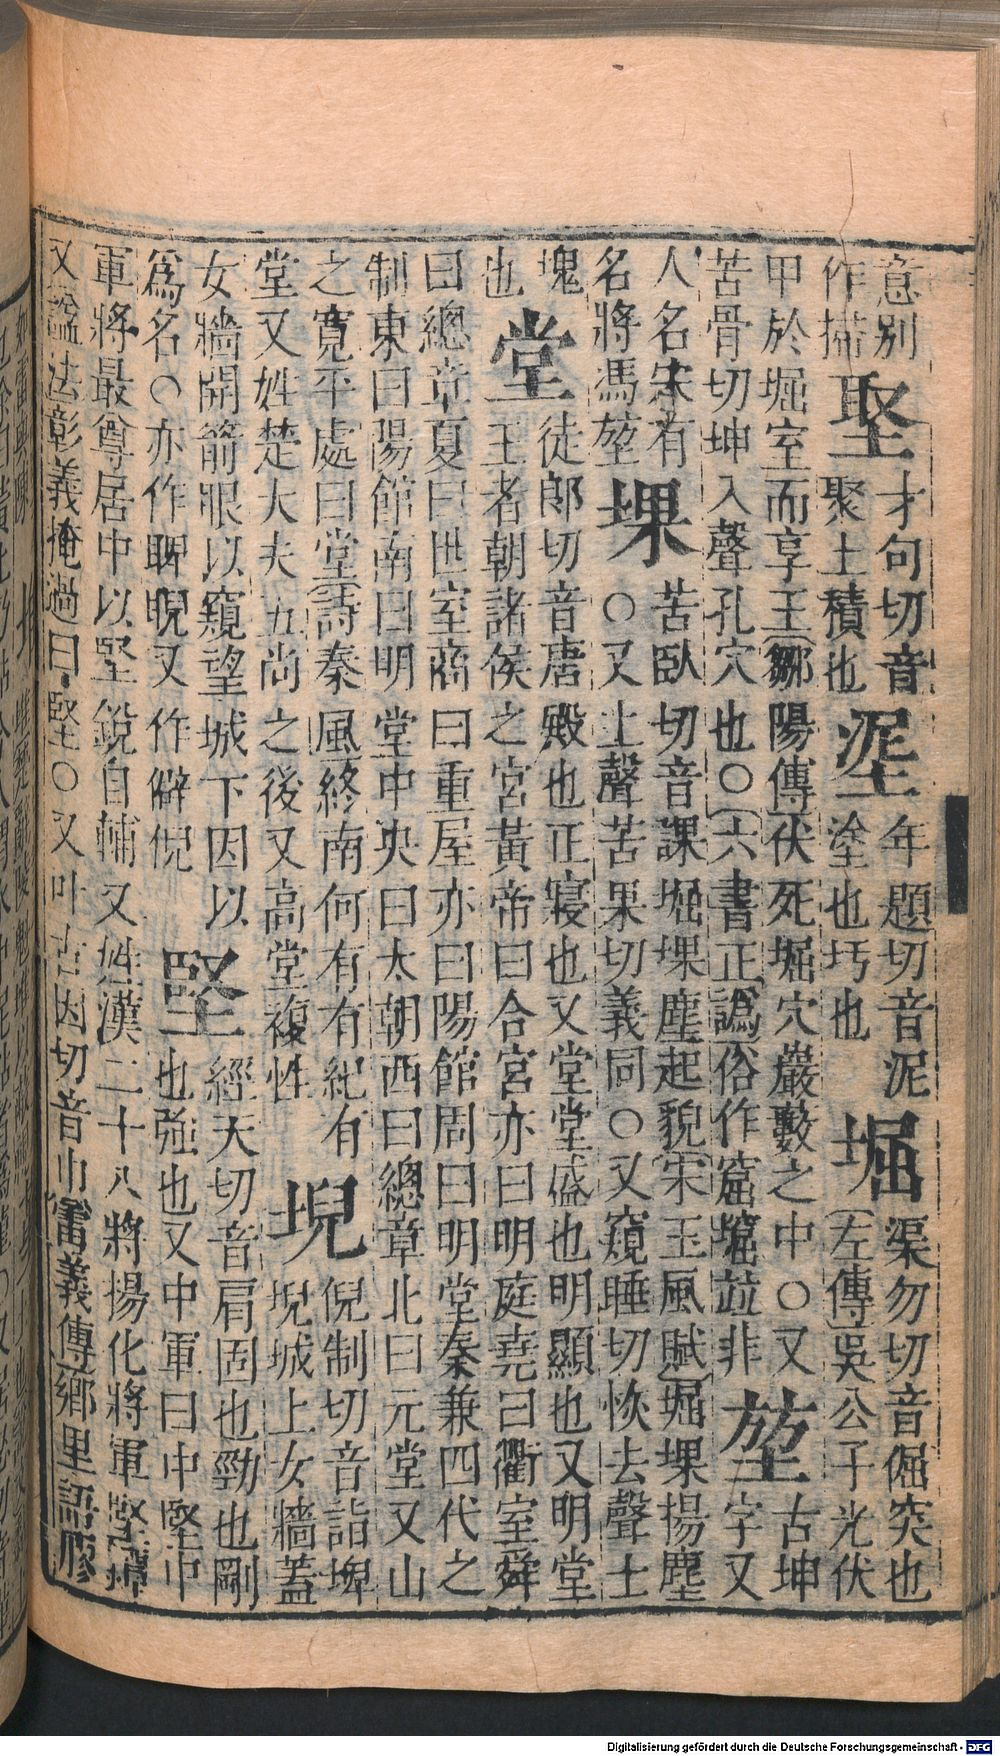 意別作埽埾才句切音聚土積也埿年題切音泥塗也圬也堀渠勿切音倔突也〔左傳〕吳公子光伏
甲於堀室而享王〔鄒陽傳〕伏死堀穴巖藪之中○又苦骨切坤入聲孔穴也○〔六書正譌〕俗作窟並非堃古坤字又
人名宋有名將馮堃堁苦臥切音課堀堁塵起貌〔宋玉風賦〕堀堁揚塵○又上聲苦果切義同○又窺睡切恢去聲土
塊也堂徒郎切音唐殿也正寢也又堂堂盛也明顯也又明堂王者朝諸侯之宮黃帝曰合宮亦曰明庭堯曰衢室舜
曰總章夏曰世室商曰重屋亦曰陽館周曰明堂秦兼四代之制東曰陽館南曰明堂中央曰太朝西曰總章北曰元堂又山
之寬平處曰堂〔詩秦風〕終南何有有紀有堂又姓楚大夫五尚之後又高堂複性堄倪制切音詣埤堄城上女牆蓋
女牆開箭眼以窺望城下因以爲名○亦作睥睨又作僻倪堅經天切音肩固也勁也剛也強也又中軍曰中堅中
軍將最尊居中以堅銳自輔又姓漢二十八將揚化將軍堅鐔又諡法彰義掩過曰堅○又叶古因切音巾雷義傳鄉里語膠
Digitalisierung gefördert durch die Deutsche Forschungsgemeinschaft - DFG